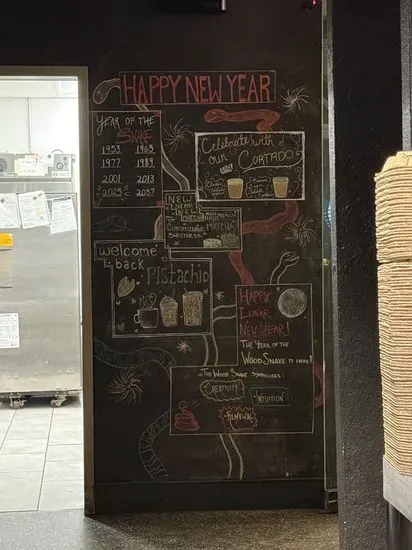 HAPPY NEW YEAR
YEAR OF THE
SNAKE
1953 1965
1977 1989
2001 2013
2025 2037
Celebrate with
our CORTADO
NEW
YEAR
NEW
MATCHA
CUSTOMIZABLE
SWEETNESS
MATCHA
welcome
back
Pistachio
HAPPY
LUNAR
NEW YEAR!
THE YEAR OF THE
WOOD SNAKE IS HERE!
THE WOOD SNAKE SYMBOLISES:
CREATIVITY
INTUITION
RENEWAL